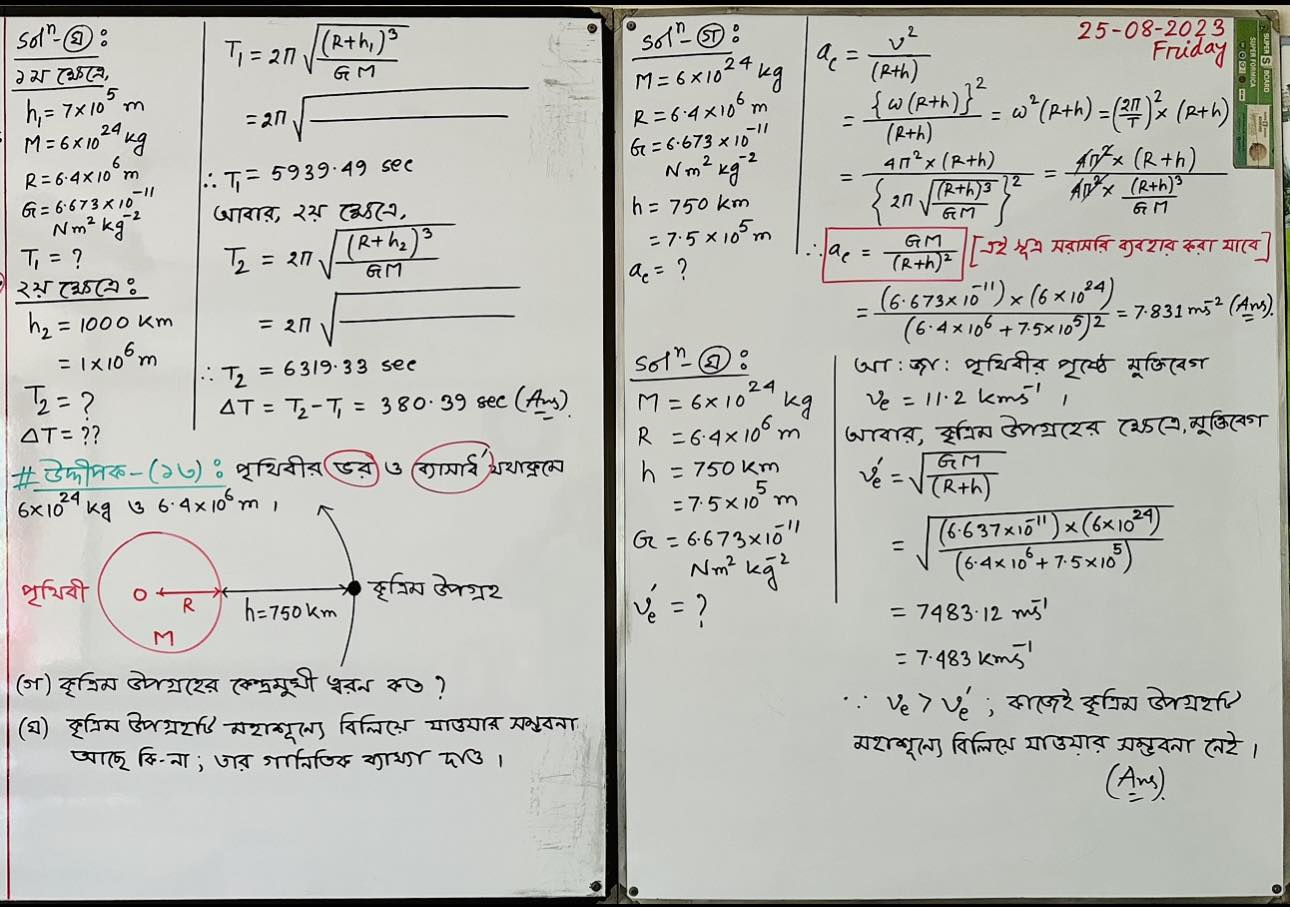 Solⁿ-(ঘ):
১ম ক্ষেত্রে,
h₁ = 7×10⁵ m
M = 6×10²⁴ kg
R = 6.4×10⁶ m
G = 6.673×10⁻¹¹
Nm² kg⁻²
T₁ = ?
২য় ক্ষেত্রে:
h₂ = 1000 km
= 1×10⁶ m
T₂ = ?
ΔT = ??
T₁ = 2π √((R+h₁)³/GM)
= 2π √
∴ T₁ = 5939.49 sec
আবার, ২য় ক্ষেত্রে,
T₂ = 2π √((R+h₂)³/GM)
= 2π √
∴ T₂ = 6319.33 sec
ΔT = T₂ - T₁ = 380.39 sec (Ans).
# উদ্দীপক-(১৩): পৃথিবীর ভর ও ব্যাসার্ধ যথাক্রমে
6×10²⁴ kg ও 6.4×10⁶ m ।
পৃথিবী
O
R
M
h = 750 km
কৃত্রিম উপগ্রহ
(গ) কৃত্রিম উপগ্রহের কেন্দ্রমুখী ত্বরন কত ?
(ঘ) কৃত্রিম উপগ্রহটি মহাশূন্যে বিলিয়ে যাওয়ার সম্ভবনা
আছে কি-না ; তার গানিতিক ব্যাখ্যা দাও ।
25-08-2023
Friday
SUPER S BOARD
SUPER FORMICA
Solⁿ-(গ):
M = 6×10²⁴ kg
R = 6.4×10⁶ m
G = 6.673×10⁻¹¹
Nm² kg⁻²
h = 750 km
= 7.5×10⁵ m
a_c = ?
a_c = v²/(R+h)
= {ω(R+h)}²/(R+h) = ω²(R+h) = (2π/T)² × (R+h)
= 4π²×(R+h)/{2π√((R+h)³/GM)}² = 4π²×(R+h)/(4π²×(R+h)³/GM)
∴ a_c = GM/(R+h)² [এই সূত্র সরাসরি ব্যবহার করা যাবে]
= (6.673×10⁻¹¹)×(6×10²⁴)/(6.4×10⁶+7.5×10⁵)² = 7.831 ms⁻² (Ans).
Solⁿ-(ঘ):
M = 6×10²⁴ kg
R = 6.4×10⁶ m
h = 750 km
= 7.5×10⁵ m
G = 6.673×10⁻¹¹
Nm² kg⁻²
v′ₑ = ?
আ:জা: পৃথিবীর পৃষ্ঠে মুক্তিবেগ
vₑ = 11.2 kms⁻¹ ।
আবার, কৃত্রিম উপগ্রহের ক্ষেত্রে, মুক্তিবেগ
v′ₑ = √(GM/(R+h))
= √((6.637×10⁻¹¹)×(6×10²⁴)/(6.4×10⁶+7.5×10⁵))
= 7483.12 ms⁻¹
= 7.483 kms⁻¹
∵ vₑ > v′ₑ ; কাজেই কৃত্রিম উপগ্রহটি
মহাশূন্যে বিলিয়ে যাওয়ার সম্ভবনা নেই ।
(Ans).